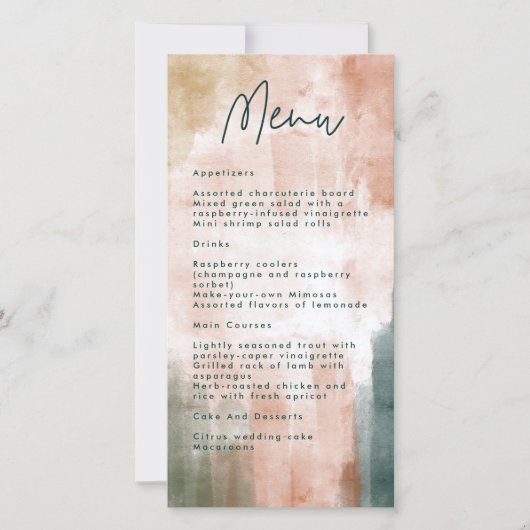 Menu
Appetizers
Assorted charcuterie board
Mixed green salad with a
raspberry-infused vinaigrette
Mini shrimp salad rolls
Drinks
Raspberry coolers
(champagne and raspberry
sorbet)
Make-your-own Mimosas
Assorted flavors of lemonade
Main Courses
Lightly seasoned trout with
parsley-caper vinaigrette
Grilled rack of lamb with
asparagus
Herb-roasted chicken and
rice with fresh apricot
Cake And Desserts
Citrus wedding-cake
Macaroons